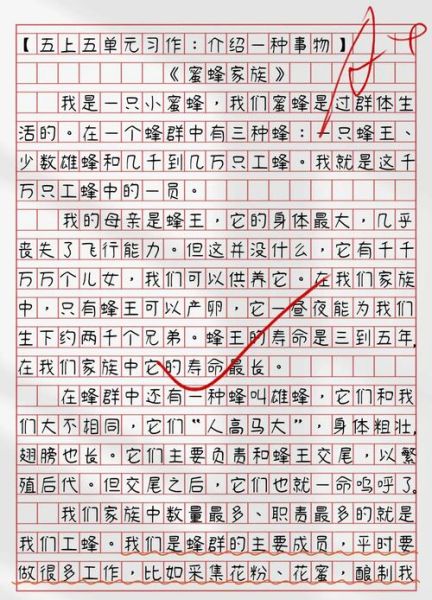 【五上五单元习作：介绍一种事物】
《蜜蜂家族》
我是一只小蜜蜂，我们蜜蜂是过群体生
活的。在一个蜂群中有三种蜂：一只蜂王、
少数雄蜂和几千到几万只工蜂。我就是这千
万只工蜂中的一员。
我的母亲是蜂王，它的身体最大，几乎
丧失了飞行能力。但这并没什么，它有千千
万万个儿女，我们可以供养它。在我们家族
中，只有蜂王可以产卵，它一昼夜能为我们
生下约两千个兄弟。蜂王的寿命是三到五年，
在我们家族中它的寿命最长。
在蜂群中还有一种蜂叫雄蜂，它们和我
们大不相同，它们“人高马大”，身体粗壮，
翅膀也长。它们主要负责和蜂王交尾，以繁
殖后代。但交尾之后，它们也就一命呜呼了。
我们家族中数量最多、职责最多的就是
我们工蜂。我们是蜂群的主要成员，平时要
做很多工作，比如采集花粉、花蜜，酿制我